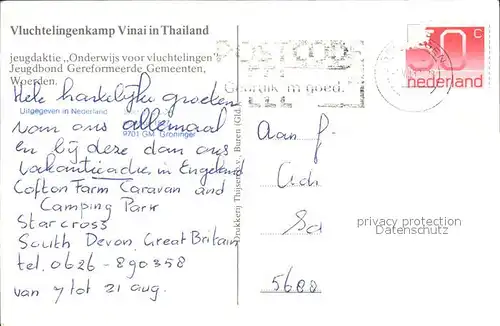 Vluchtelingenkamp Vinai in Thailand
jeugdaktie „Onderwijs voor vluchtelingen"
Jeugdbond Gereformeerde Gemeenten,
Woerden.
Hele hartelijke groeten
Uitgegeven in Nederland
van ons allemaal
9701 GM Groningen
en bij deze dan ons
vakantieadres in Engeland
Cofton Farm Caravan and
Camping Park
Starcross
South Devon, Great Britain
tel. 0626-890358
van 7 tot 21 aug.
Drukkerij Thijsen b.v. Buren (Gld.)
POSTCODE
Gebruik 'm goed.
50 c
nederland
Aan f.
5688
privacy protection
Datenschutz